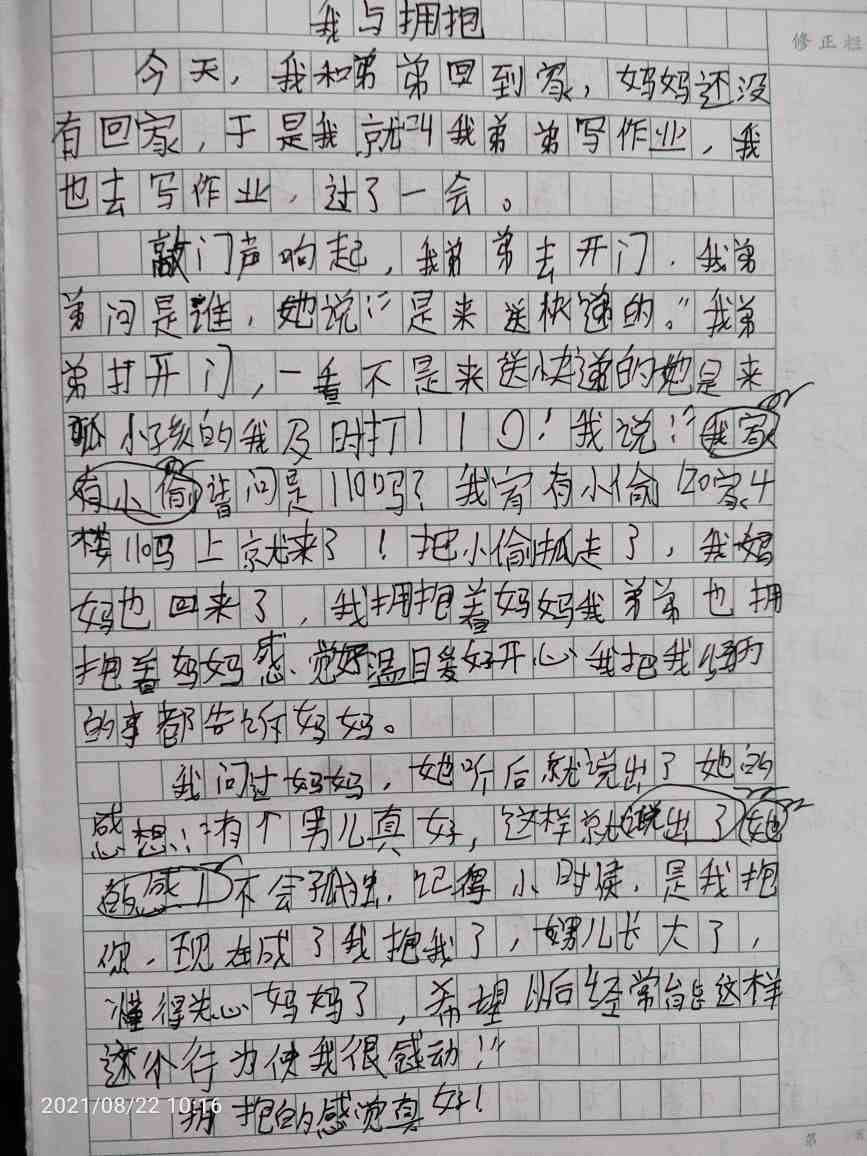 我与拥抱
修正栏
今天，我和弟弟回到家，妈妈还没
有回家，于是我就叫我弟弟写作业，我
也去写作业，过了一会。
敲门声响起，我弟弟去开门．我弟
弟问是谁，她说：“是来送快递的。”我弟
弟打开门，一看不是来送快递的她是来
抓小孩的我及时打110！我说：“我家
有小偷 问是110吗？我家有小偷120家4
楼110吗上就来了！把小偷抓走了，我妈
妈也回来了，我拥抱着妈妈我弟弟也拥
抱着妈妈感觉好温暖好开心我把我
的事都告诉妈妈。
我问过妈妈，她听后就说出了她的
感想：“有个男儿真好，这样就说出了她
的感 不会孤独．记得小时侯．是我抱
你．现在成了我抱我了， 儿长大了，
懂得关心妈妈了，希望以后经常能这样
这个行为使我很感动！”
拥抱的感觉真好！
2021/08/22 10:16
第